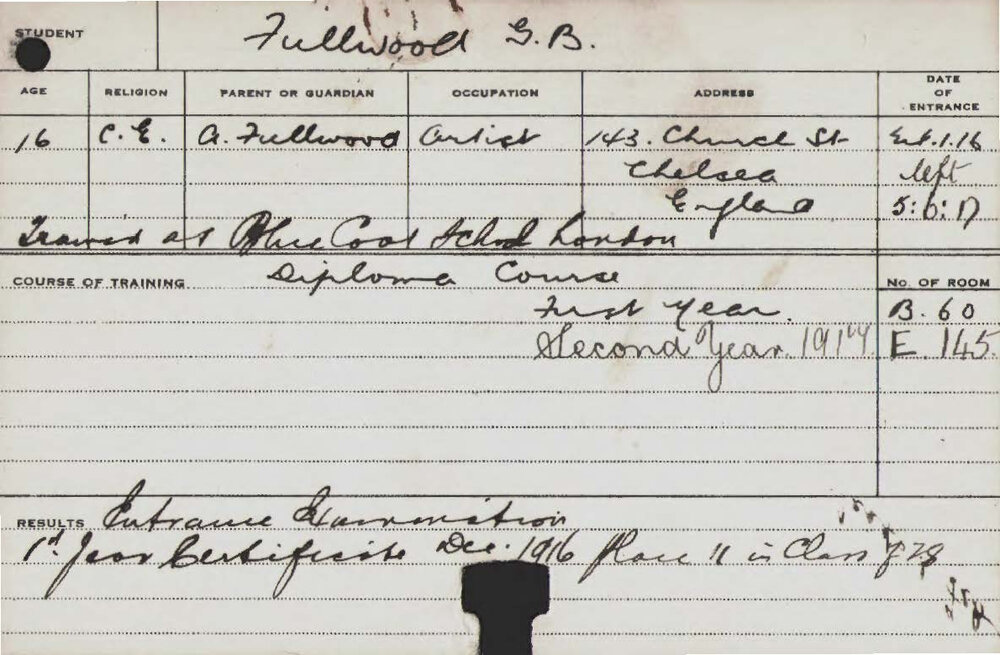 STUDENT Fullwood G.B.
AGE RELIGION PARENT OR GUARDIAN OCCUPATION ADDRESS DATE OF ENTRANCE
16 C.E. A. Fullwood Artist 143. Church St 1.16
Chelsea left
England 5:6:17
Trained at Blue Coat School London
COURSE OF TRAINING Diploma Course No. OF ROOM
First Year. B. 60
Second Year. 1917 E. 145.
RESULTS Entrance Examination
1st Year Certificate Dec. 1916 Place 11 in Class of 28